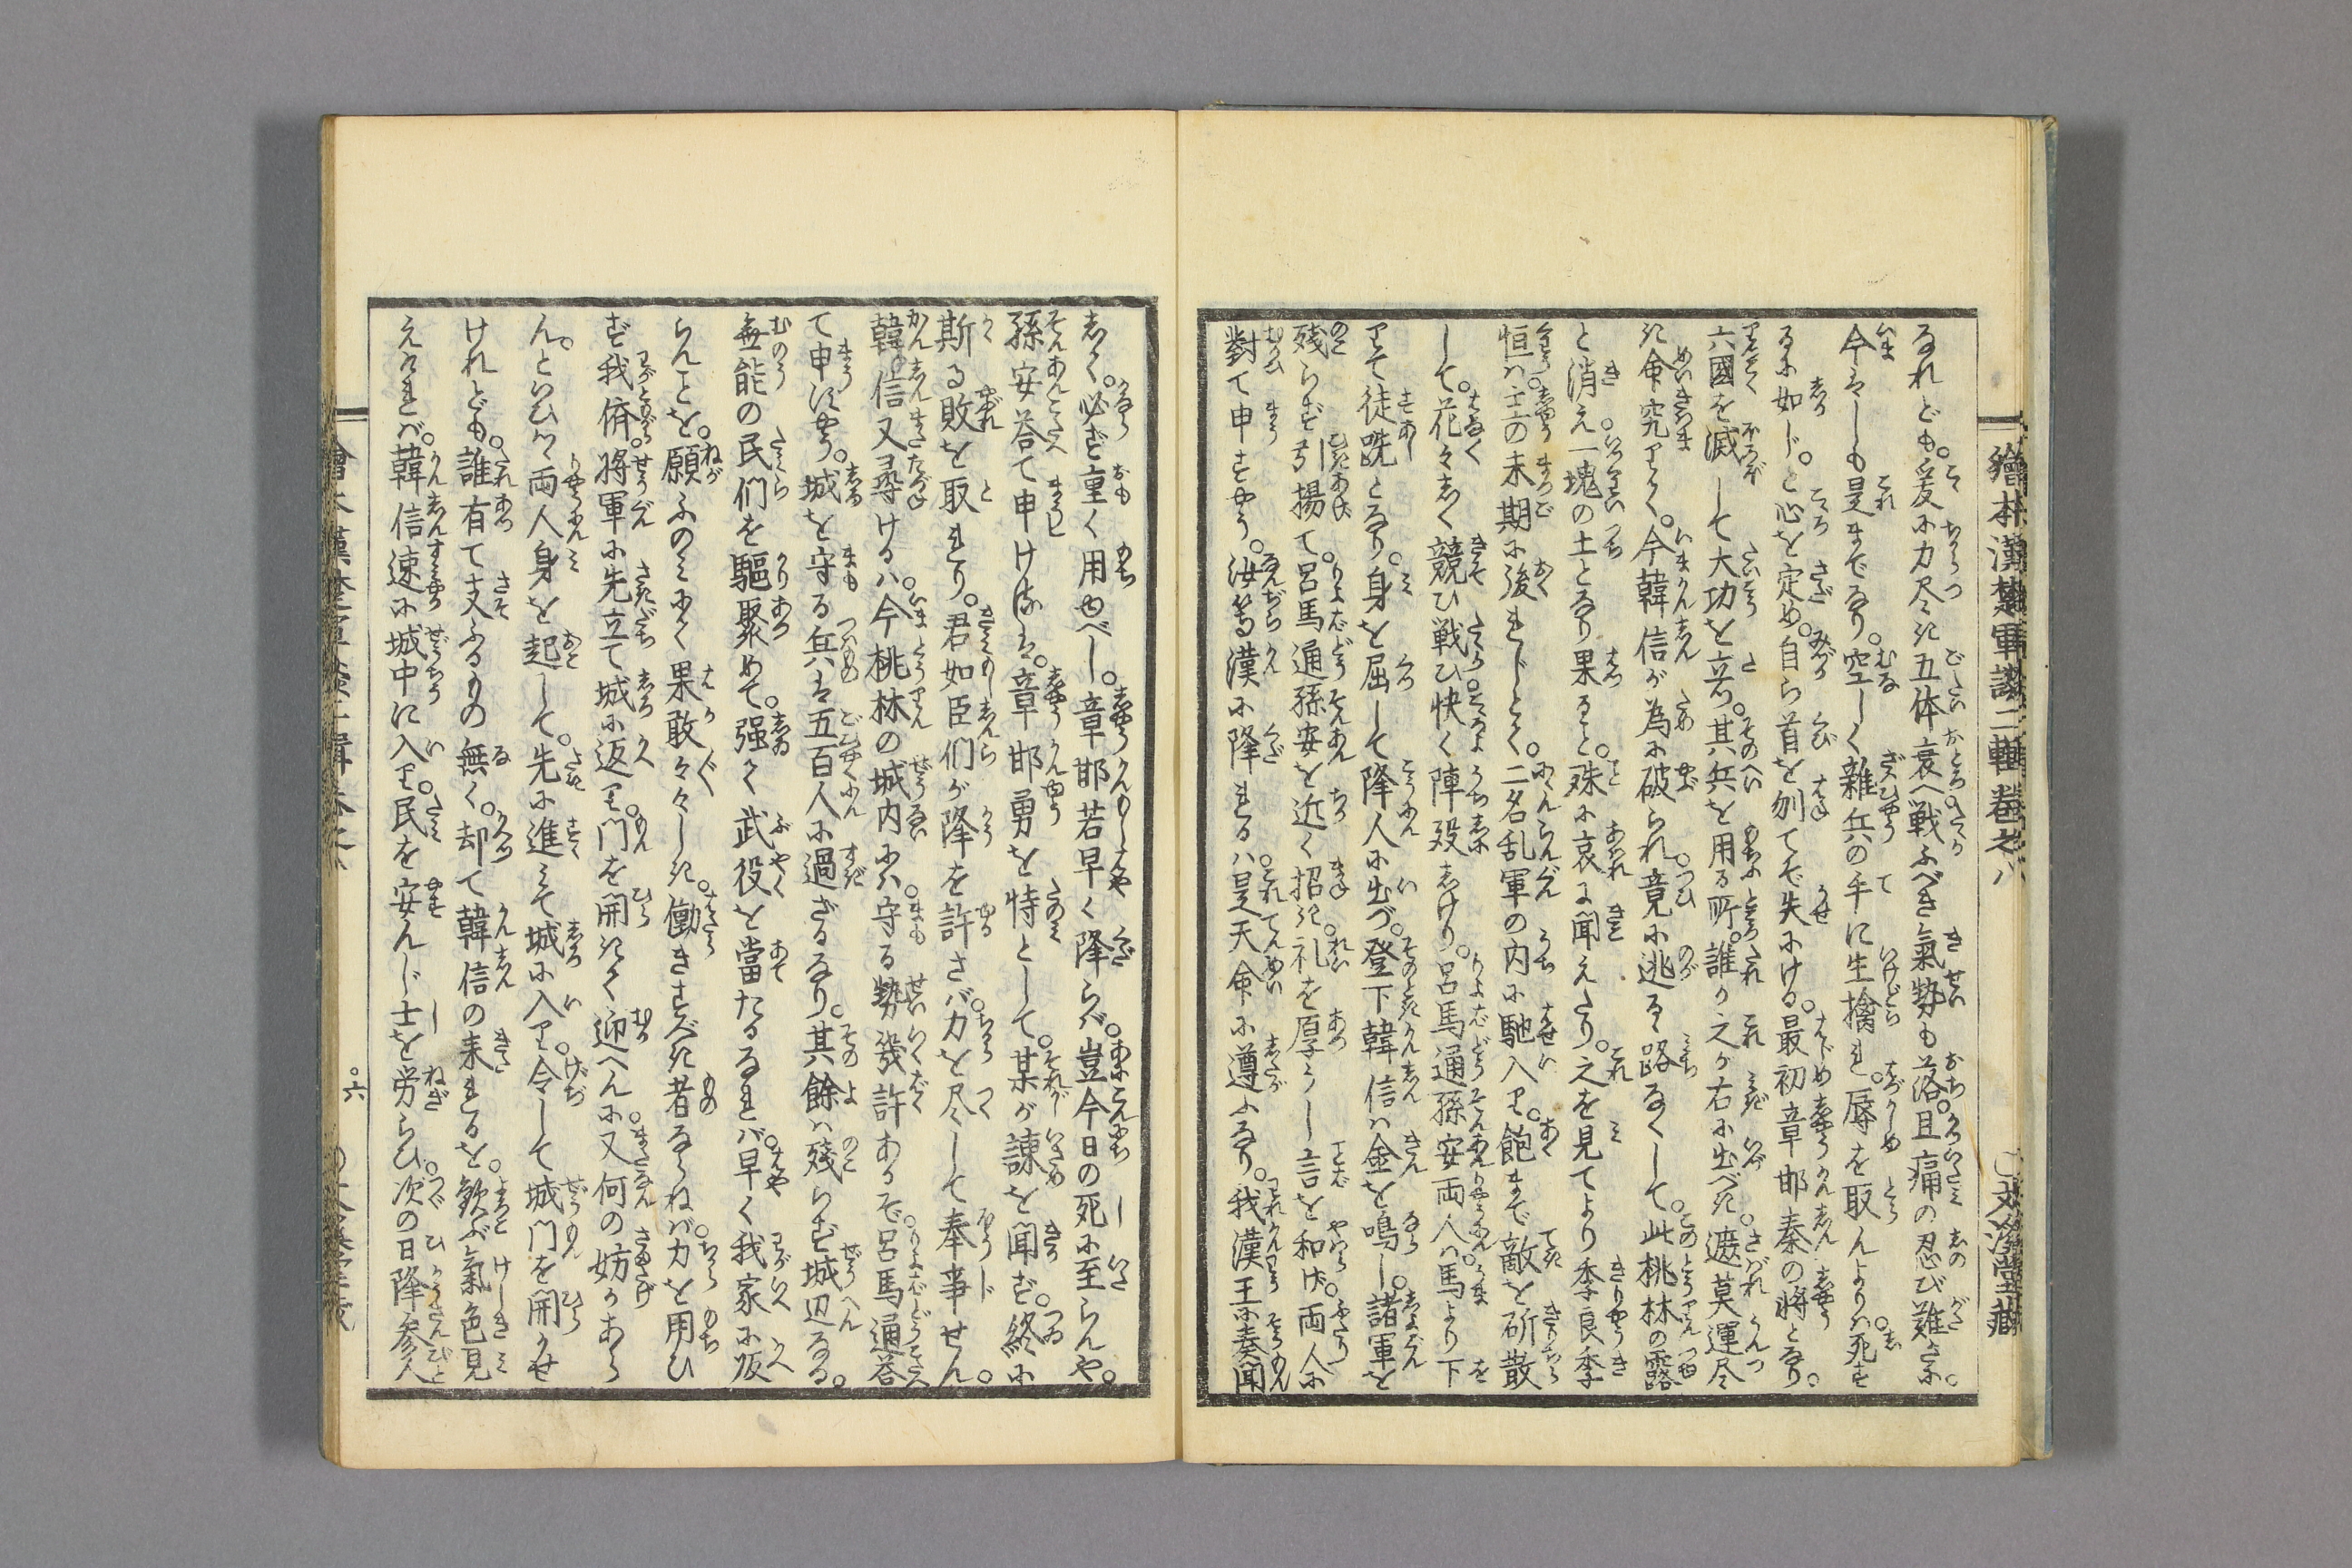 繪本漢楚軍談二輯卷之八　文溪堂藏
なれども。爰に力尽き五体衰へ戦ふべき氣勢も落。且痛の忍び難さに。
今はしも是までなり。空しく雜兵の手に生擒れ。辱を取んよりハ。死す
るに如じ。と心を定め。自ら首を刎てぞ失にける。最初章邯秦の將となり。
六國を滅して大功を立。其兵を用る所。誰か之が右に出べき。遮莫運尽
き命究りて。今韓信が為に破られ。竟に逃るゝ路なくして。此桃林の露
と消え。一塊の土となり果ると。殊に哀に聞えたり。之を見てより季良季
恒ハ。主の末期に後れじとて。二名乱軍の内に馳入り。飽まで敵を斫散
して。花々しく競ひ戦ひ。快く陣歿しけり。呂馬通孫安両人ハ。馬より下
りて徒跣となり。身を屈して降人に出づ。登下韓信ハ金を鳴し。諸軍を
残らず引揚て。呂馬通孫安を近く招き。礼を厚うし言を和げ。両人に
對て申すやう。汝等漢に降れるハ。是天命に遵ふなり。我漢王に奏聞
しく。必ず重く用ゆべし。章邯若早く降らバ。豈今日の死に至らんや。
孫安荅て申けるは。章邯勇を恃として。某が諫を聞ず。終に
斯る敗を取れり。君如臣們が降を許さバ。力を尽して奉事せん。
韓信又尋けるハ。今桃林の城内にハ。守る勢幾許あるぞ。呂馬通荅
て申すやう。城を守る兵は五百人に過ざるなり。其餘ハ残らず城辺なる。
無能の民們を驅聚めて。强て武役を當たるなれバ。早く我家に皈
らんとを。願ふのミにて果敢々々しき。働きすべき者ならねバ。力を用ひ
ず我儕。將軍に先立て城に返り。門を開きて迎へんに。又何の妨かあら
ん。といひつゝ両人身を起して。先に進ミて城に入り。令して城門を開かせ
けれども。誰有て支ふるもの無く。却て韓信の来れるを。歓ぶ氣色見
えけれバ。韓信速に城中に入り。民を安んじ士を労らひ。次の日降參人
六